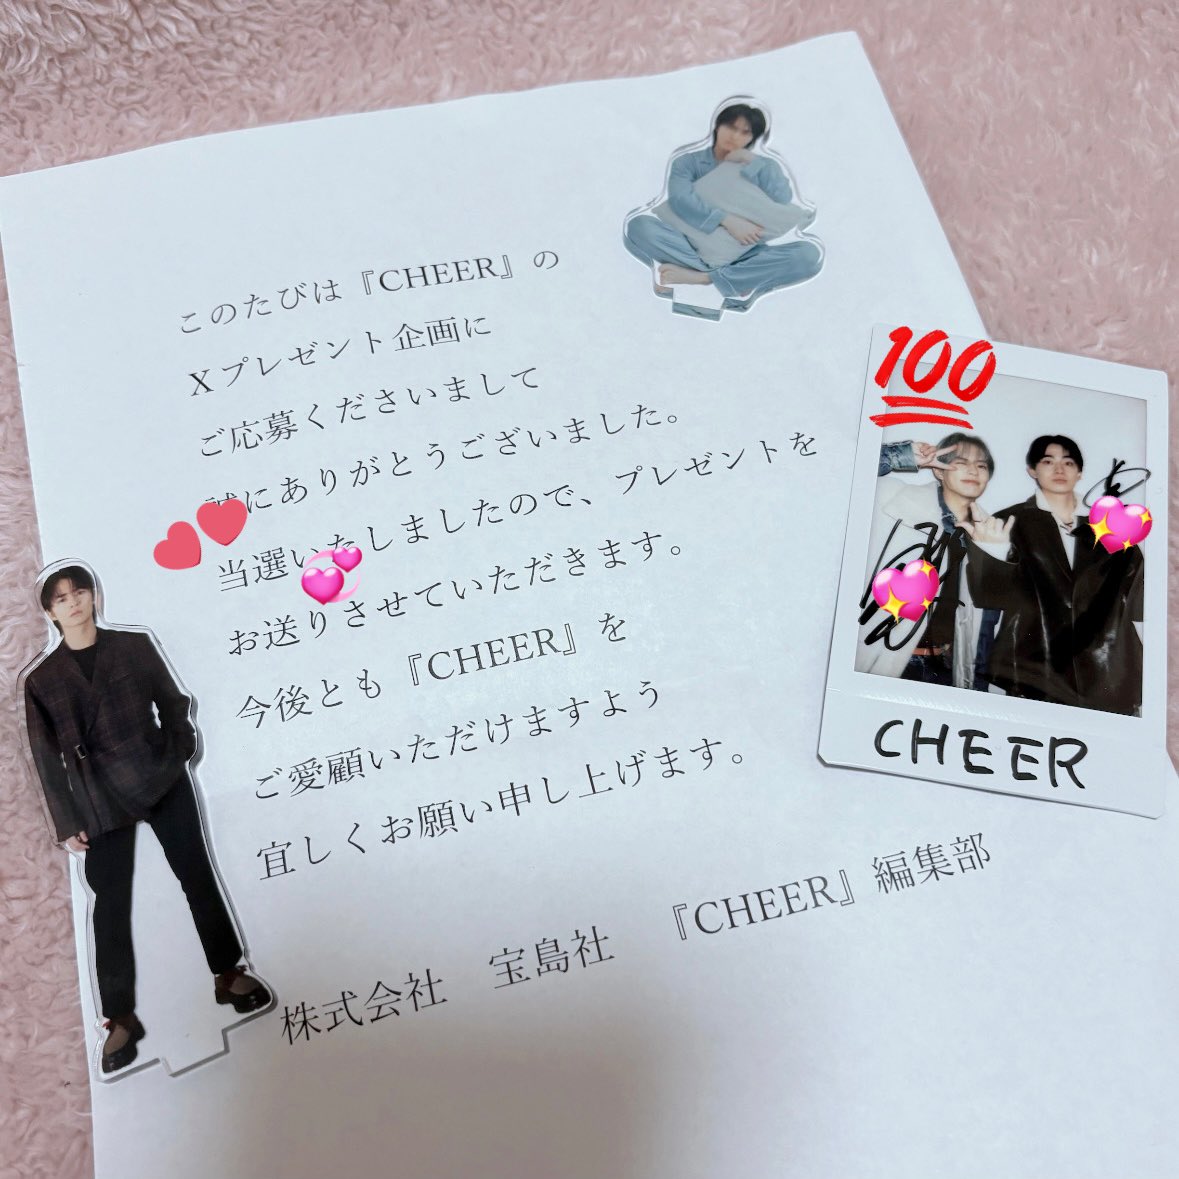 このたびは『CHEER』の
Xプレゼント企画に
ご応募くださいまして
誠にありがとうございました。
当選いたしましたので、プレゼントを
お送りさせていただきます。
今後とも『CHEER』を
ご愛顧いただけますよう
宜しくお願い申し上げます。
株式会社 宝島社 『CHEER』編集部
100
CHEER